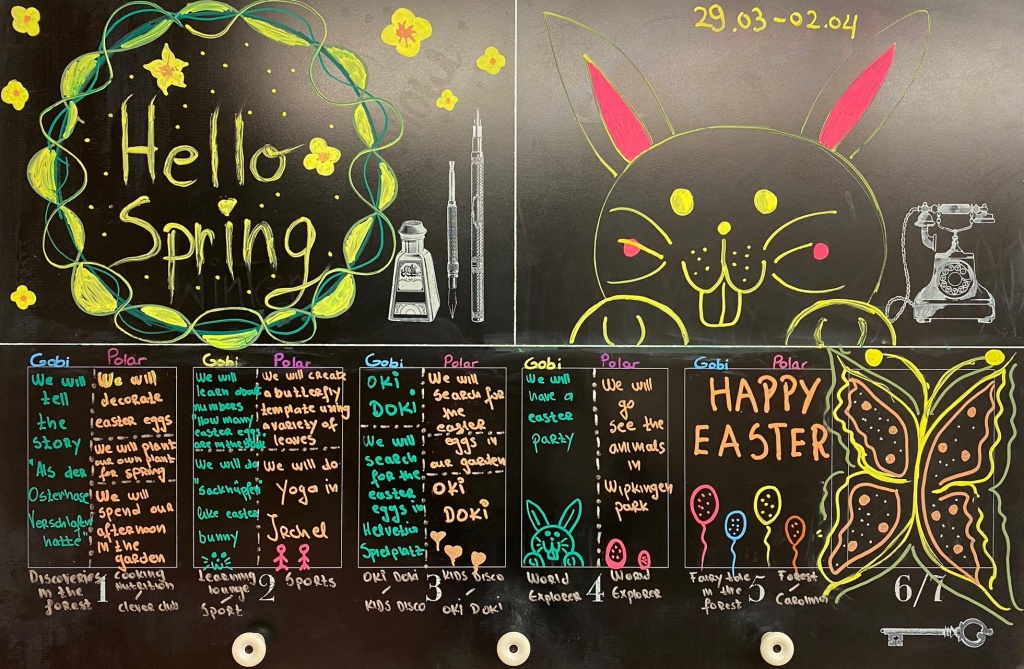 Hello
Spring
29.03-02.04
Gobi Polar
We will
tell
the
story
"Als der
Osterhase
Verschlafen
hatte"
We will
decorate
easter eggs
We will plant
our own plant
for spring
We will
spend our
afternoon
in the
garden
Discoveries
in the
forest
1
cooking
Nutrition
clever club
Gobi Polar
We will
learn about
numbers
How many
easter eggs
are in the
We will do
"sackhüpfen"
like easter
bunny
We will create
a butterfly
template using
a variety of
leaves
We will do
Yoga in
Irchel
Learning
lounge
Sport
2
Sports
Gobi Polar
OKi
DOKi
We will
search
for the
easter
eggs in
Helvetia
Spielplatz
We will
search for
the
easter
eggs in
our garden
OKi
DOKi
OKi Doki
/
KIDS DISCO
3
KIDS DISCO
/
OKI DOKI
Gobi Polar
We will
have a
easter
party
We will
go
see the
animals
in
Wipkingen
park
World
Explorer
4
World
Explorer
Gobi Polar
HAPPY
EASTER
Fairy tale
in the
forest
5
Forest
/
6/7